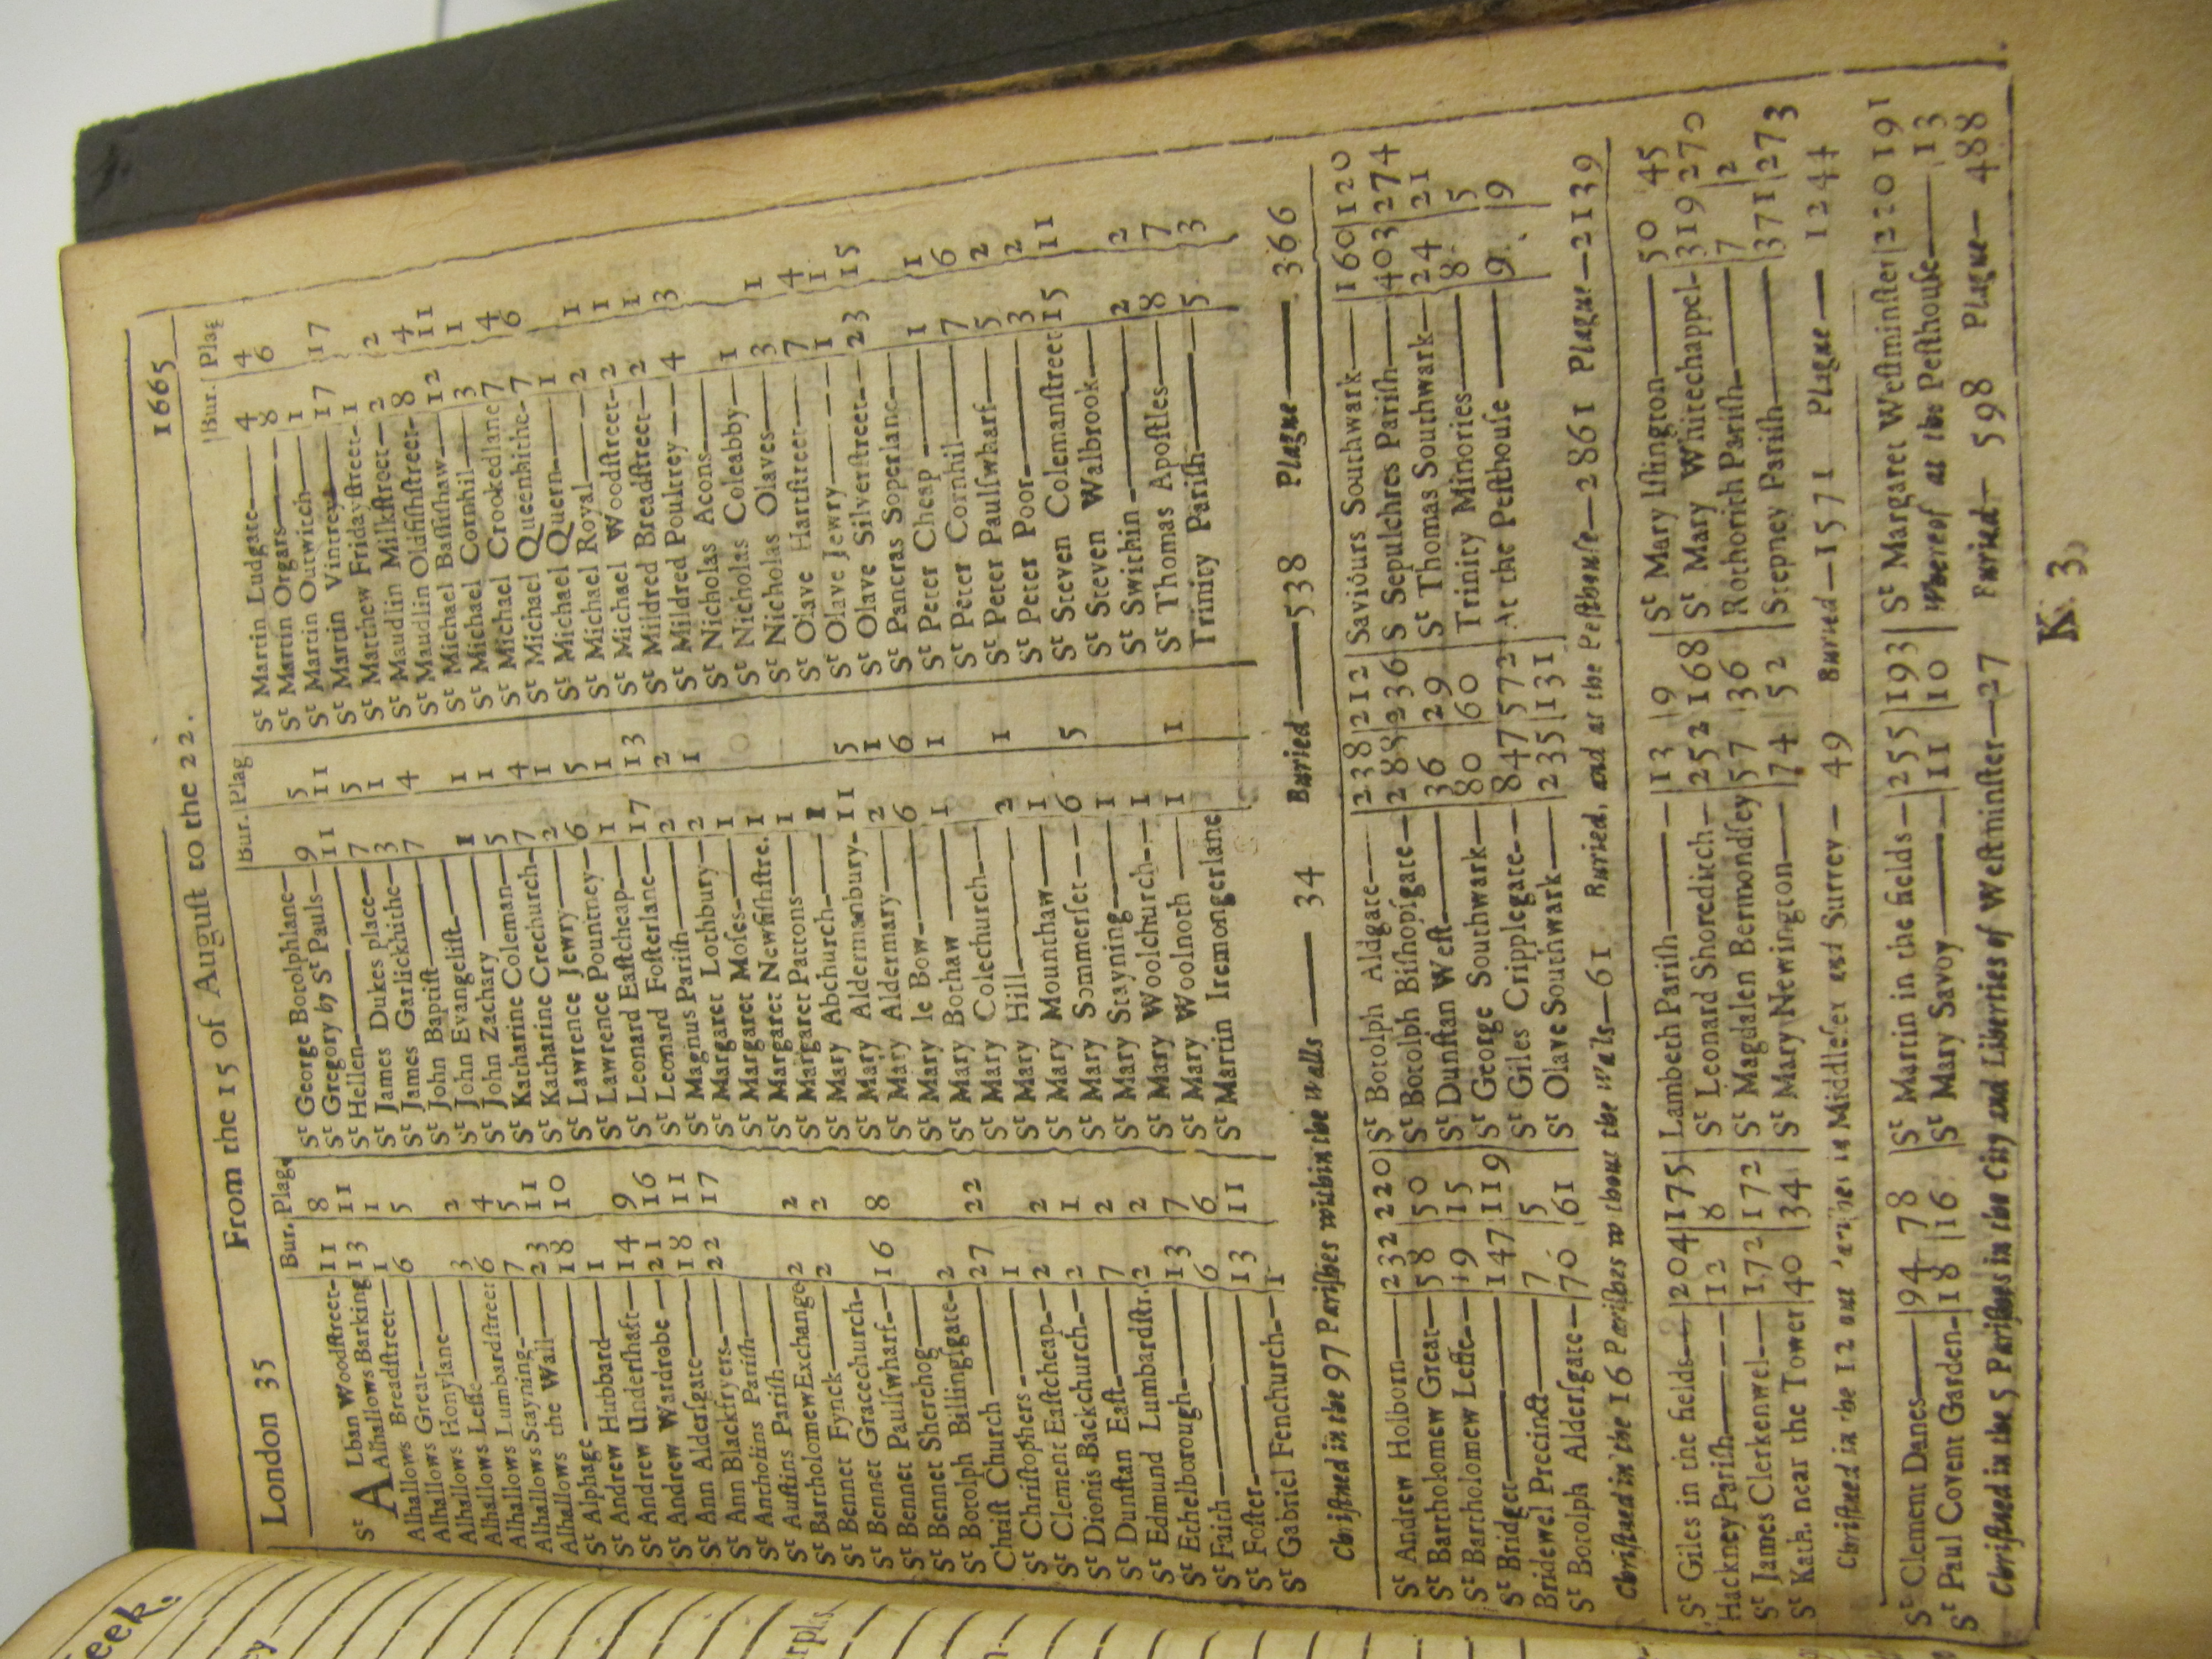 London 35 From the 15 of Auguſt to the 22. 1665
Bur. Plag.
St ALban Woodſtreet 11 8
Alhallows Barking 13 11
Alhallows Breadſtreet 1 1
Alhallows Great 6 5
Alhallows Honylane
Alhallows Leſſe 3 2
Alhallows Lumbardſtreet 6 4
Alhallows Stayning 7 5
Alhallows the Wall 23 11
St Alphage 18 10
St Andrew Hubbard 1
St Andrew Underſhaft 14 9
St Andrew Wardrobe 21 16
St Ann Alderſgate 18 11
St Ann Blackfryers 22 17
St Antholins Pariſh
St Auſtins Pariſh
St Bartholomew Exchange 2 2
St Bennet Fynck 2 2
St Bennet Gracechurch
St Bennet Paulſwharf 16 8
St Bennet Sherehog
St Botolph Billingſgate 2
Chriſt Church 27 22
St Chriſtophers 1
St Clement Eaſtcheap 2 2
St Dionis Backchurch 2 1
St Dunſtan Eaſt 7 2
St Edmund Lumbardſtr. 2 2
St Ethelborough 13 7
St Faith 6 6
St Foſter 13 11
St Gabriel Fenchurch 1
Bur. Plag
St George Botolphlane
St Gregory by St Pauls 9 5
St Hellen 11 11
St James Dukes place 7 5
St James Garlickhithe 3 1
St John Baptiſt 7 4
St John Evangeliſt
St John Zachary 1 1
St Katharine Coleman 5 1
St Katharine Crechurch 7 4
St Lawrence Jewry 2 1
St Lawrence Pountney 6 5
St Leonard Eaſtcheap 1 1
St Leonard Foſterlane 17 13
St Magnus Pariſh 2 2
St Margaret Lothbury 2 1
St Margaret Moſes 1
St Margaret Newfiſhſtre. 1
St Margaret Pattons 1
St Mary Abchurch 1
St Mary Aldermanbury 11 5
St Mary Aldermary 2 1
St Mary le Bow 6 6
St Mary Bothaw 1 1
St Mary Colechurch
St Mary Hill 2 1
St Mary Mounthaw 1
St Mary Sommerſet 6 5
St Mary Stayning 1
St Mary Woolchurch 1
St Mary Woolnoth 1 1
St Martin Iremongerlane
Bur. Plag
St Martin Ludgate 4 4
St Martin Orgars 8 6
St Martin Outwitch 1
St Martin Vintrey 17 17
St Matthew Fridayſtreet 1
St Maudlin Milkſtreet 2 2
St Maudlin Oldfiſhſtreet 8 4
St Michael Baſſiſhaw 12 11
St Michael Cornhil 3 1
St Michael Crookedlane 7 4
St Michael Queenhithe 7 6
St Michael Quern 1
St Michael Royal 2 1
St Michael Woodſtreet 2 1
St Mildred Breadſtreet 2 1
St Mildred Poultrey 4 3
St Nicholas Acons
St Nicholas Coleabby 1
St Nicholas Olaves 3 1
St Olave Hartſtreet 7 4
St Olave Jewry 1 1
St Olave Silverſtreet 23 15
St Pancras Soperlane
St Peter Cheap 1 1
St Peter Cornhil 7 6
St Peter Paulſwharf 5 2
St Peter Poor 3 2
St Steven Colemanſtreet 15 11
St Steven Walbrook
St Swithin 2 2
St Thomas Apoſtles 8 7
Trinity Pariſh 5 3
Chriſtned in the 97 Pariſhes within the Walls — 34 Buried — 538 Plague — 366
St Andrew Holborn 232 220
St Bartholomew Great 58 50
St Bartholomew Leſſe 19 15
St Bridget 147 119
Bridewel Precinct 7 5
St Botolph Alderſgate 70 61
St Botolph Aldgate 238 212
St Botolph Biſhopſgate 288 236
St Dunſtan Weſt 36 29
St George Southwark 80 60
St Giles Cripplegate 847 572
St Olave Southwark 235 131
Saviours Southwark 160 120
S Sepulchres Pariſh 403 274
St Thomas Southwark 24 21
Trinity Minories 8 5
At the Peſthouſe 9 9
Chriſtned in the 16 Pariſhes without the Walls — 61 Buried, and at the Peſthouſe — 2861 Plague — 2139
St Giles in the fields 204 175
Hackney Pariſh 12 8
St James Clerkenwel 172 172
St Kath. near the Tower 40 34
Lambeth Pariſh 13 9
St Leonard Shoreditch 252 168
St Magdalen Bermondſey 57 36
St Mary Newington 74 52
St Mary Iſlington 50 45
St Mary Whitechappel 319 270
Rothorith Pariſh 7 2
Stepney Pariſh 371 273
Chriſtned in the 12 out Pariſhes in Middleſex and Surrey — 49 Buried — 1571 Plague — 1244
St Clement Danes 94 78
St Paul Covent Garden 18 16
St Martin in the fields 255 193
St Mary Savoy 11 10
St Margaret Weſtminſter 220 191
Whereof at the Peſthouſe 13
Chriſtned in the 5 Pariſhes in the City and Liberties of Weſtminſter — 27 Buried — 598 Plague — 488
K 3